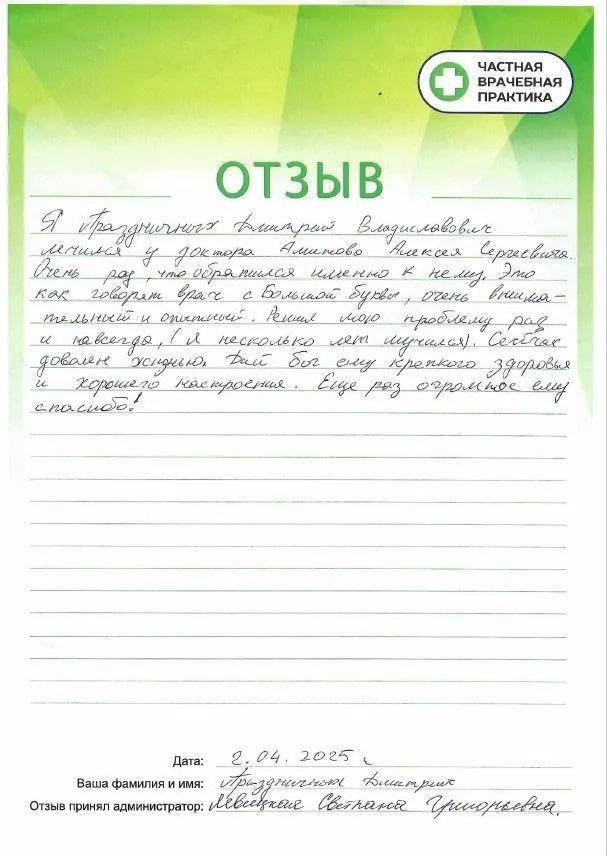 ЧАСТНАЯ
ВРАЧЕБНАЯ
ПРАКТИКА
ОТЗЫВ
Я Праздничных Дмитрий Владиславович
лечился у доктора Амитово Алексея Сергеевича.
Очень рад, что обратился именно к нему. Это
как говорят врач с Большой буквы, очень внима-
тельный и опытный. Решил мою проблему раз
и навсегда, (я несколько лет мучился). Сейчас
доволен жизнью. Дай бог ему крепкого здоровья
и хорошего настроения. Еще раз огромное ему
спасибо!
Дата: 2.04.2025 г.
Ваша фамилия и имя: Праздничных Дмитрий
Отзыв принял администратор: Левицкая Светлана Григорьевна.